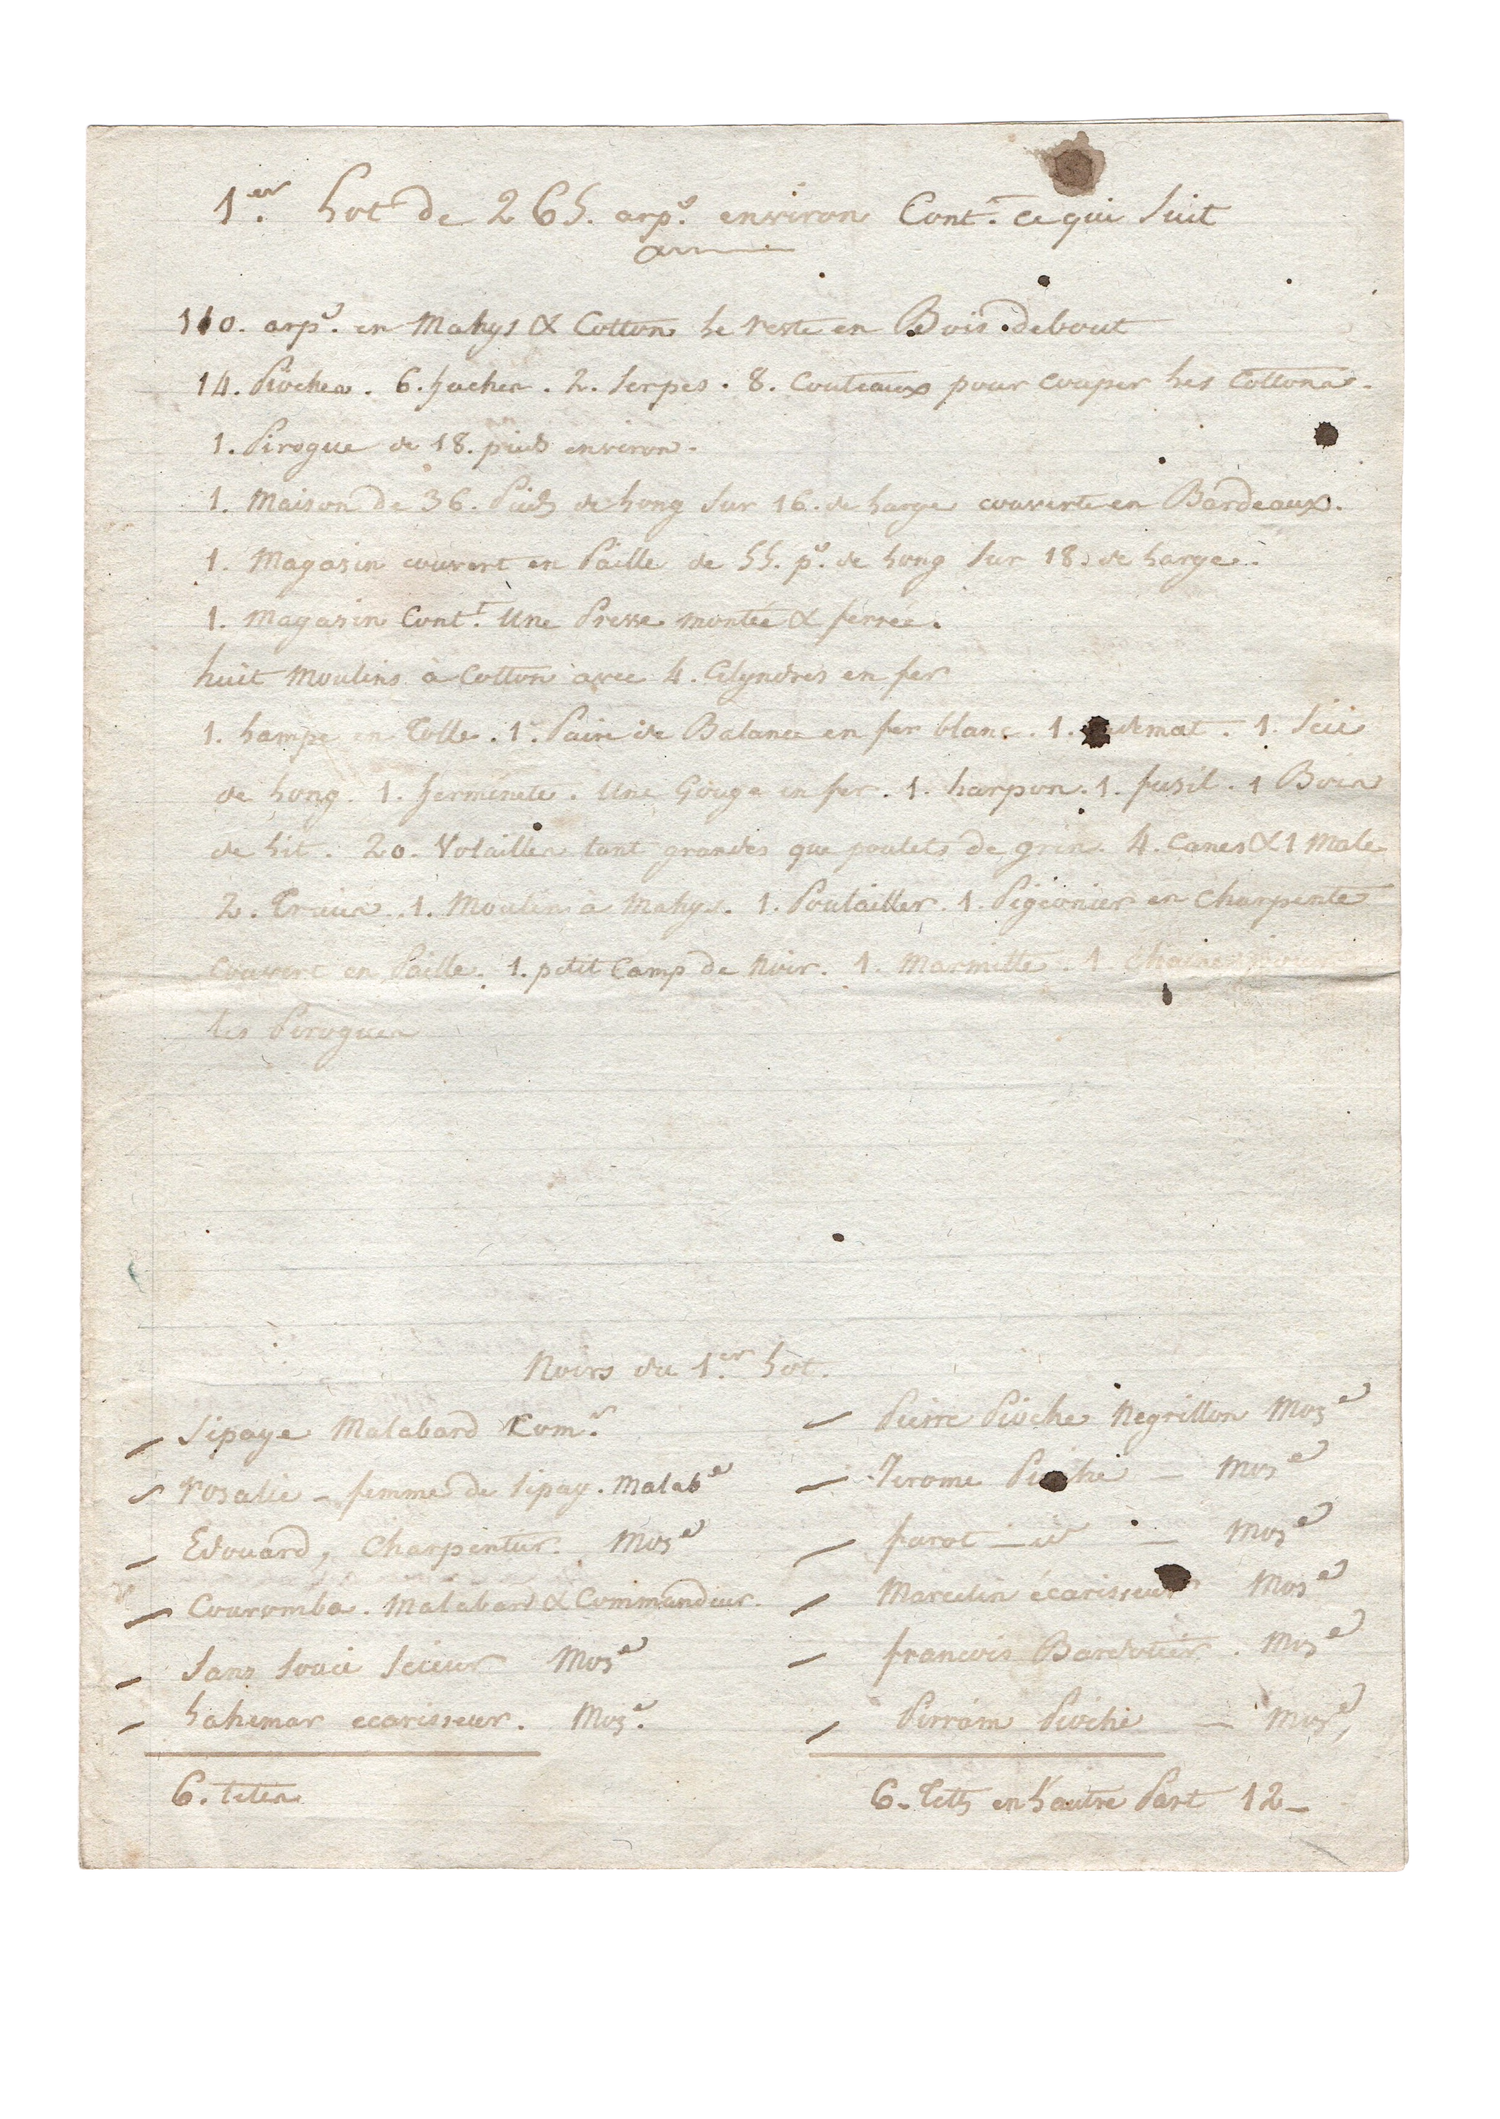 1.er Lot de 265. arp.s environ Cont.t ce qui suit
110. arp.s en Mahys & Cotton le reste en Bois debout
14. Pioches. 6. haches. 2. Serpes. 8. Couteaux pour couper les Cottons.
1. Pirogue de 18. pieds environ.
1. Maison de 36. Pieds de long sur 16. de large couverte en Bardeaux.
1. Magasin couvert en Paille de 55. p.s de long sur 18. de large.
1. Magasin Cont.t Une Presse montée & ferrée.
huit Moulins à Cotton avec 4. Cilyndres en fer
1. Lampe en Tolle. 1. Paire de Balance en fer blanc. 1. 1. Scie
de long. 1. herminete. Une Gouge en fer. 1. harpon. 1. fusil. 1 Bois
de lit. 20. Volailles tant grandes que poulets de grin. 4. Canes & 1 Male
2. Truies. 1. Moulin à Mahys. 1. Poulailler. 1. Pigeonier en Charpente
Couvert en Paille. 1. petit Camp de Noir. 1. Marmitte. 1. Chaine pour
les Pirogues
Noirs du 1.er Lot.
Sipaye Malabard Com.r
rosalie - femme de Sipay. Malab.e
Edouard, Charpentier. Moz.e
Couromba. Malabard & Commandeur.
Sans Souci Scieur Moz.e
Lahimar ecarisseur. Moz.e
6. tetes
Pierre Pioche Negrillon Moz.e
Jerome Pioche — Moz.e
farot — id — Moz.e
Marcelin écarisseur Moz.e
francois Bardotier. Moz.e
Pirram Pioche — Moz.e
6. Tetes en L'autre Part 12 -